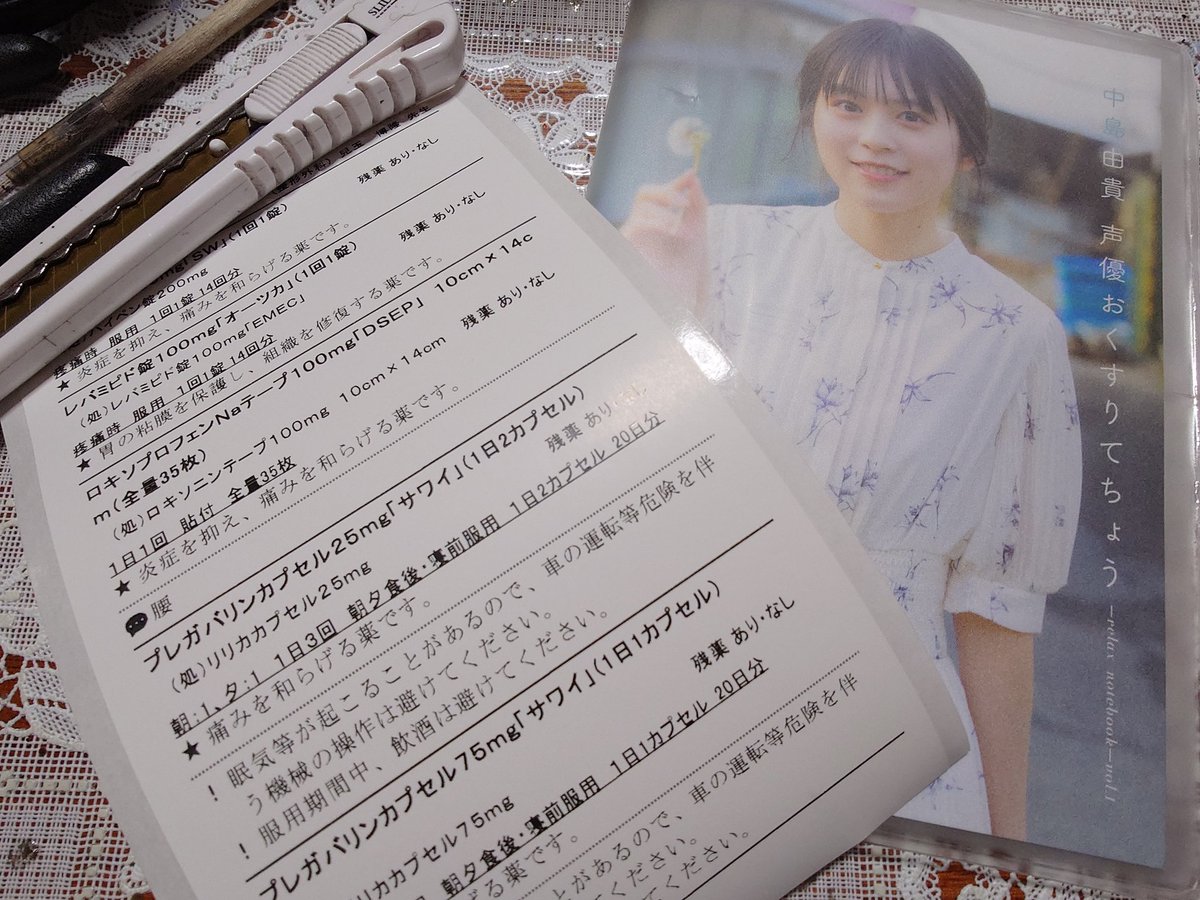 残薬 あり・なし
疼痛時 服用 1回1錠 14回分
★ 炎症を抑え、痛みを和らげる薬です。
レバミピド錠100mg「オーツカ」(1回1錠)
残薬 あり・なし
(処)レバミピド錠100mg「EMEC」
疼痛時 服用 1回1錠 14回分
★ 胃の粘膜を保護し、組織を修復する薬です。
ロキソプロフェンNaテープ100mg「DSEP」 10cm×14c
m(全量35枚)
残薬 あり・なし
(処)ロキソニンテープ100mg 10cm×14cm
1日1回 貼付 全量35枚
★ 炎症を抑え、痛みを和らげる薬です。
腰
プレガバリンカプセル25mg「サワイ」(1日2カプセル)
残薬 あり・なし
(処)リリカカプセル25mg
朝:1、夕:1 1日3回 朝夕食後・寝前服用 1日2カプセル 20日分
★ 痛みを和らげる薬です。
! 眠気等が起こることがあるので、車の運転等危険を伴
う機械の操作は避けてください。
! 服用期間中、飲酒は避けてください。
プレガバリンカプセル75mg「サワイ」(1日1カプセル)
残薬 あり・なし
リリカカプセル75mg
朝夕食後・寝前服用 1日1カプセル 20日分
る薬です。
があるので、車の運転等危険を伴
ください。
ください。
中島由貴 声優おくすりてちょう
-relax notebook-vol.1